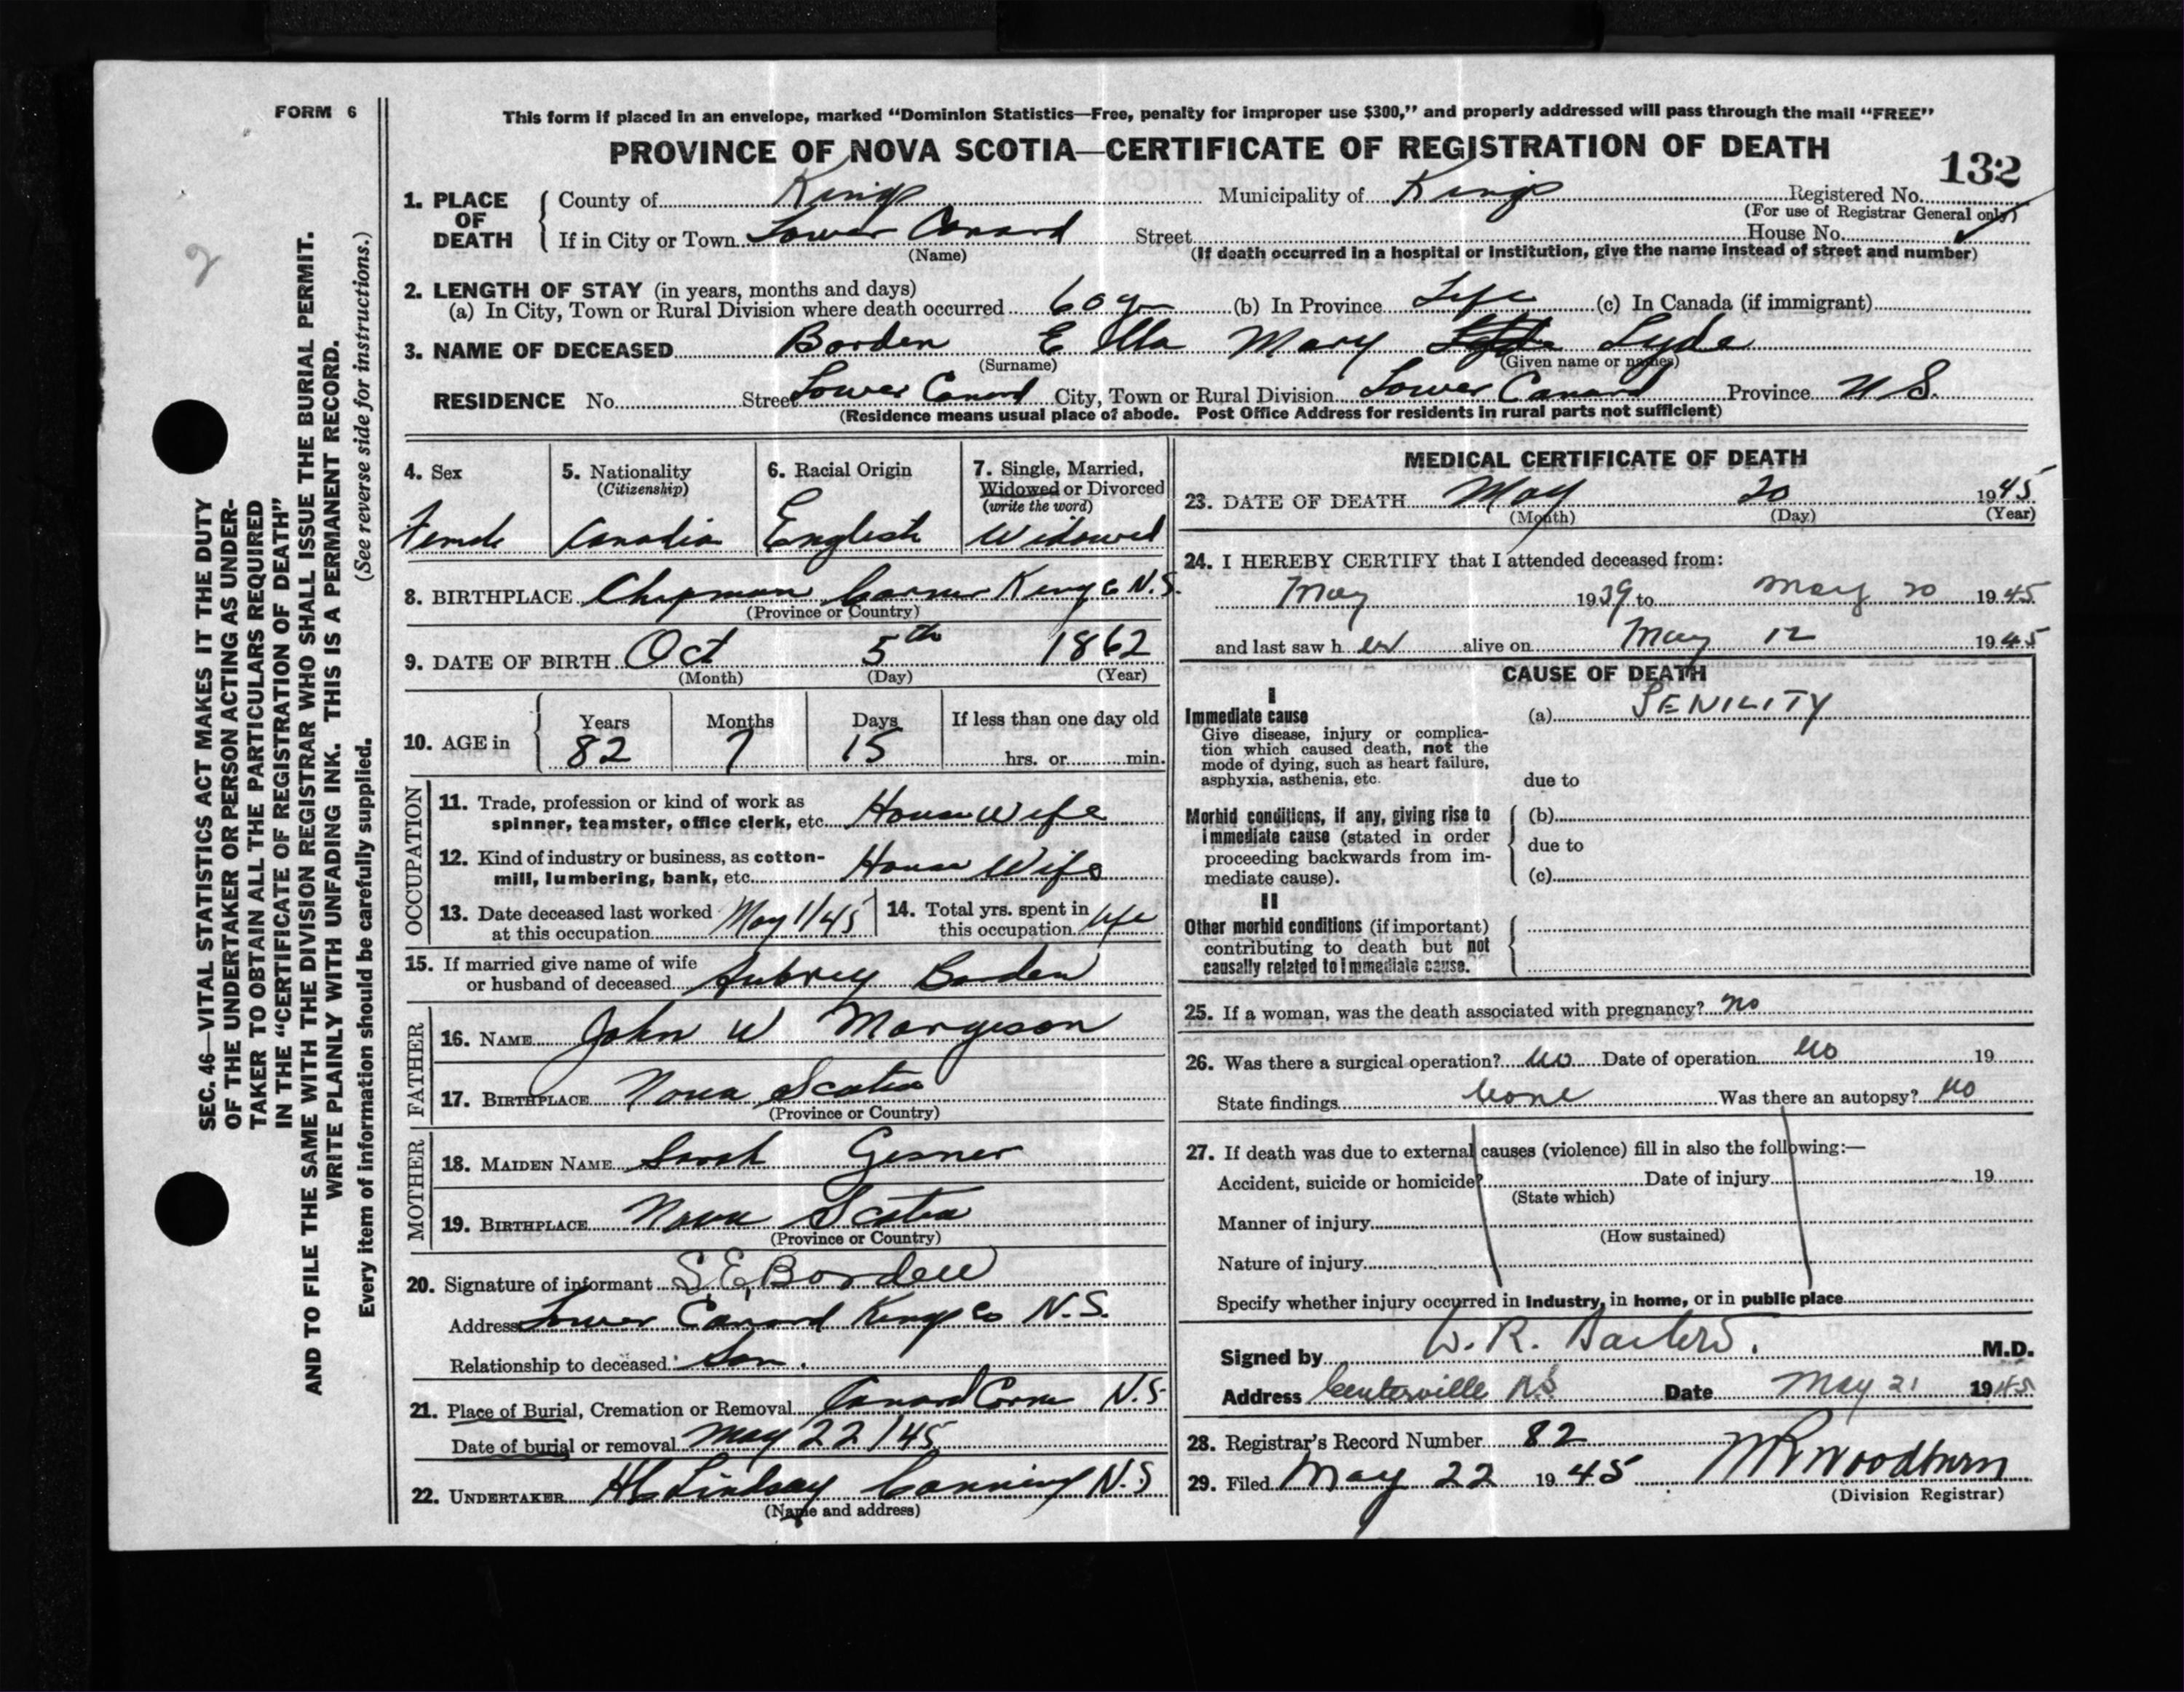 FORM 6
This form if placed in an envelope, marked "Dominion Statistics—Free, penalty for improper use $300," and properly addressed will pass through the mail "FREE"
PROVINCE OF NOVA SCOTIA—CERTIFICATE OF REGISTRATION OF DEATH
132
1. PLACE OF DEATH County of Kings Municipality of Kings Registered No.
(For use of Registrar General only)
If in City or Town Lower Canard Street House No.
(Name) (If death occurred in a hospital or institution, give the name instead of street and number)
2. LENGTH OF STAY (in years, months and days)
(a) In City, Town or Rural Division where death occurred 60 yr (b) In Province Life (c) In Canada (if immigrant)
3. NAME OF DECEASED Borden Ella Mary Lyde
(Surname) (Given name or names)
RESIDENCE No. Street Lower Canard City, Town or Rural Division Lower Canard Province N S.
(Residence means usual place of abode. Post Office Address for residents in rural parts not sufficient)
4. Sex
Female
5. Nationality
(Citizenship)
Canadian
6. Racial Origin
English
7. Single, Married,
Widowed or Divorced
(write the word)
Widowed
8. BIRTHPLACE Chipman Corner Kings Co N.S.
(Province or Country)
9. DATE OF BIRTH Oct 5th 1862
(Month) (Day) (Year)
10. AGE in
Years Months Days If less than one day old
82 7 15 hrs. or min.
OCCUPATION
11. Trade, profession or kind of work as
spinner, teamster, office clerk, etc. House Wife
12. Kind of industry or business, as cotton-
mill, lumbering, bank, etc. House Wife
13. Date deceased last worked
at this occupation May 1/45
14. Total yrs. spent in
this occupation life
15. If married give name of wife
or husband of deceased Aubrey Borden
FATHER
16. NAME John W Margeson
17. BIRTHPLACE Nova Scotia
(Province or Country)
MOTHER
18. MAIDEN NAME Sarah Gesner
19. BIRTHPLACE Nova Scotia
(Province or Country)
20. Signature of informant S. E. Borden
Address Lower Canard Kings Co N.S.
Relationship to deceased Son.
21. Place of Burial, Cremation or Removal Canard Corner N.S
Date of burial or removal May 22/45
22. UNDERTAKER H C Lindsay Canning N.S
(Name and address)
MEDICAL CERTIFICATE OF DEATH
23. DATE OF DEATH May 20 1945
(Month) (Day) (Year)
24. I HEREBY CERTIFY that I attended deceased from:
May 1939 to May 20 1945
and last saw her alive on May 12 1945
CAUSE OF DEATH
I
Immediate cause
Give disease, injury or complica-
tion which caused death, not the
mode of dying, such as heart failure,
asphyxia, asthenia, etc.
(a) SENILITY
due to
Morbid conditions, if any, giving rise to
immediate cause (stated in order
proceeding backwards from im-
mediate cause).
(b)
due to
(c)
II
Other morbid conditions (if important)
contributing to death but not
causally related to immediate cause.
25. If a woman, was the death associated with pregnancy? no
26. Was there a surgical operation? no Date of operation no 19
State findings none Was there an autopsy? no
27. If death was due to external causes (violence) fill in also the following:—
Accident, suicide or homicide? Date of injury 19
(State which)
Manner of injury
(How sustained)
Nature of injury
Specify whether injury occurred in industry, in home, or in public place
Signed by W. R. M.D.
Address Centerville N.S Date May 21 1945
28. Registrar's Record Number 82
29. Filed May 22 1945 Woodburn
(Division Registrar)
SEC. 46—VITAL STATISTICS ACT MAKES IT THE DUTY
OF THE UNDERTAKER OR PERSON ACTING AS UNDER-
TAKER TO OBTAIN ALL THE PARTICULARS REQUIRED
IN THE "CERTIFICATE OF REGISTRATION OF DEATH"
AND TO FILE THE SAME WITH THE DIVISION REGISTRAR WHO SHALL ISSUE THE BURIAL PERMIT.
WRITE PLAINLY WITH UNFADING INK. THIS IS A PERMANENT RECORD.
Every item of information should be carefully supplied. (See reverse side for instructions.)
2